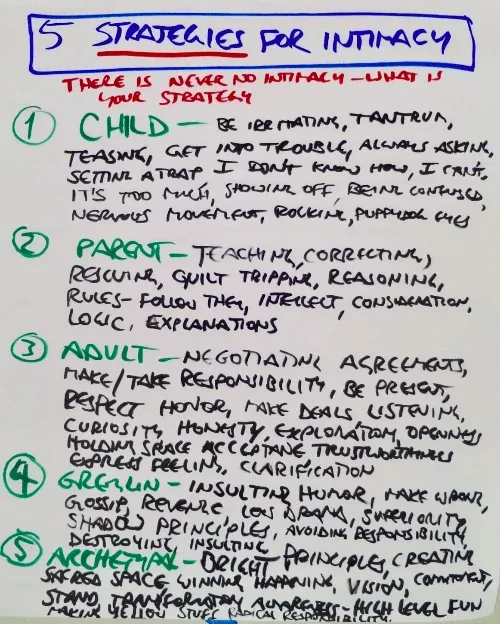 5 STRATEGIES FOR INTIMACY
THERE IS NEVER NO INTIMACY - WHAT IS
YOUR STRATEGY
1 CHILD - BE IRRITATING, TANTRUM,
TEASING, GET INTO TROUBLE, ALWAYS ASKING,
SETTING A TRAP I DON'T KNOW HOW, I CAN'T,
IT'S TOO MUCH, SHOWING OFF, BEING CONFUSED,
NERVOUS MOVEMENT, ROCKING, PUPPYDOG EYES
2 PARENT - TEACHING, CORRECTING,
RESCUING, GUILT TRIPPING, REASONING,
RULES - FOLLOW THEM, INTELLECT, CONSIDERATION,
LOGIC, EXPLANATIONS
3 ADULT - NEGOTIATING AGREEMENTS,
MAKE/TAKE RESPONSIBILITY, BE PRESENT,
RESPECT HONOR, MAKE DEALS LISTENING,
CURIOSITY, HONESTY, EXPLORATION, OPENNESS
HOLDING SPACE ACCEPTANCE TRUSTWORTHINESS
EXPRESS FEELING, CLARIFICATION
4 GREMLIN - INSULTING HUMOR, MAKE WRONG,
GOSSIP, REVENGE, LOW DRAMA, SUPERIORITY,
SHADOW PRINCIPLES, AVOIDING RESPONSIBILITY,
DESTROYING, INSULTING
5 ARCHETYPAL - BRIGHT PRINCIPLES, CREATING
SACRED SPACE WINNING HAPPENING, VISION, COMMITMENT,
STAND TRANSFORMATION AWARENESS - HIGH LEVEL FUN
MAKING YELLOW STUFF RADICAL RESPONSIBILITY.